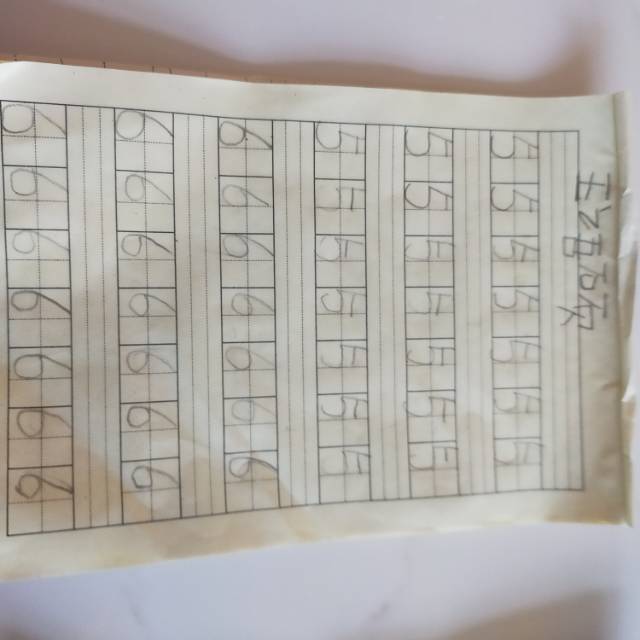 5 5 5 5 5 5 5
5 5 5 5 5 5 5
5 5 5 5 5 5 5
6 6 6 6 6 6 6
6 6 6 6 6 6 6
6 6 6 6 6 6 6